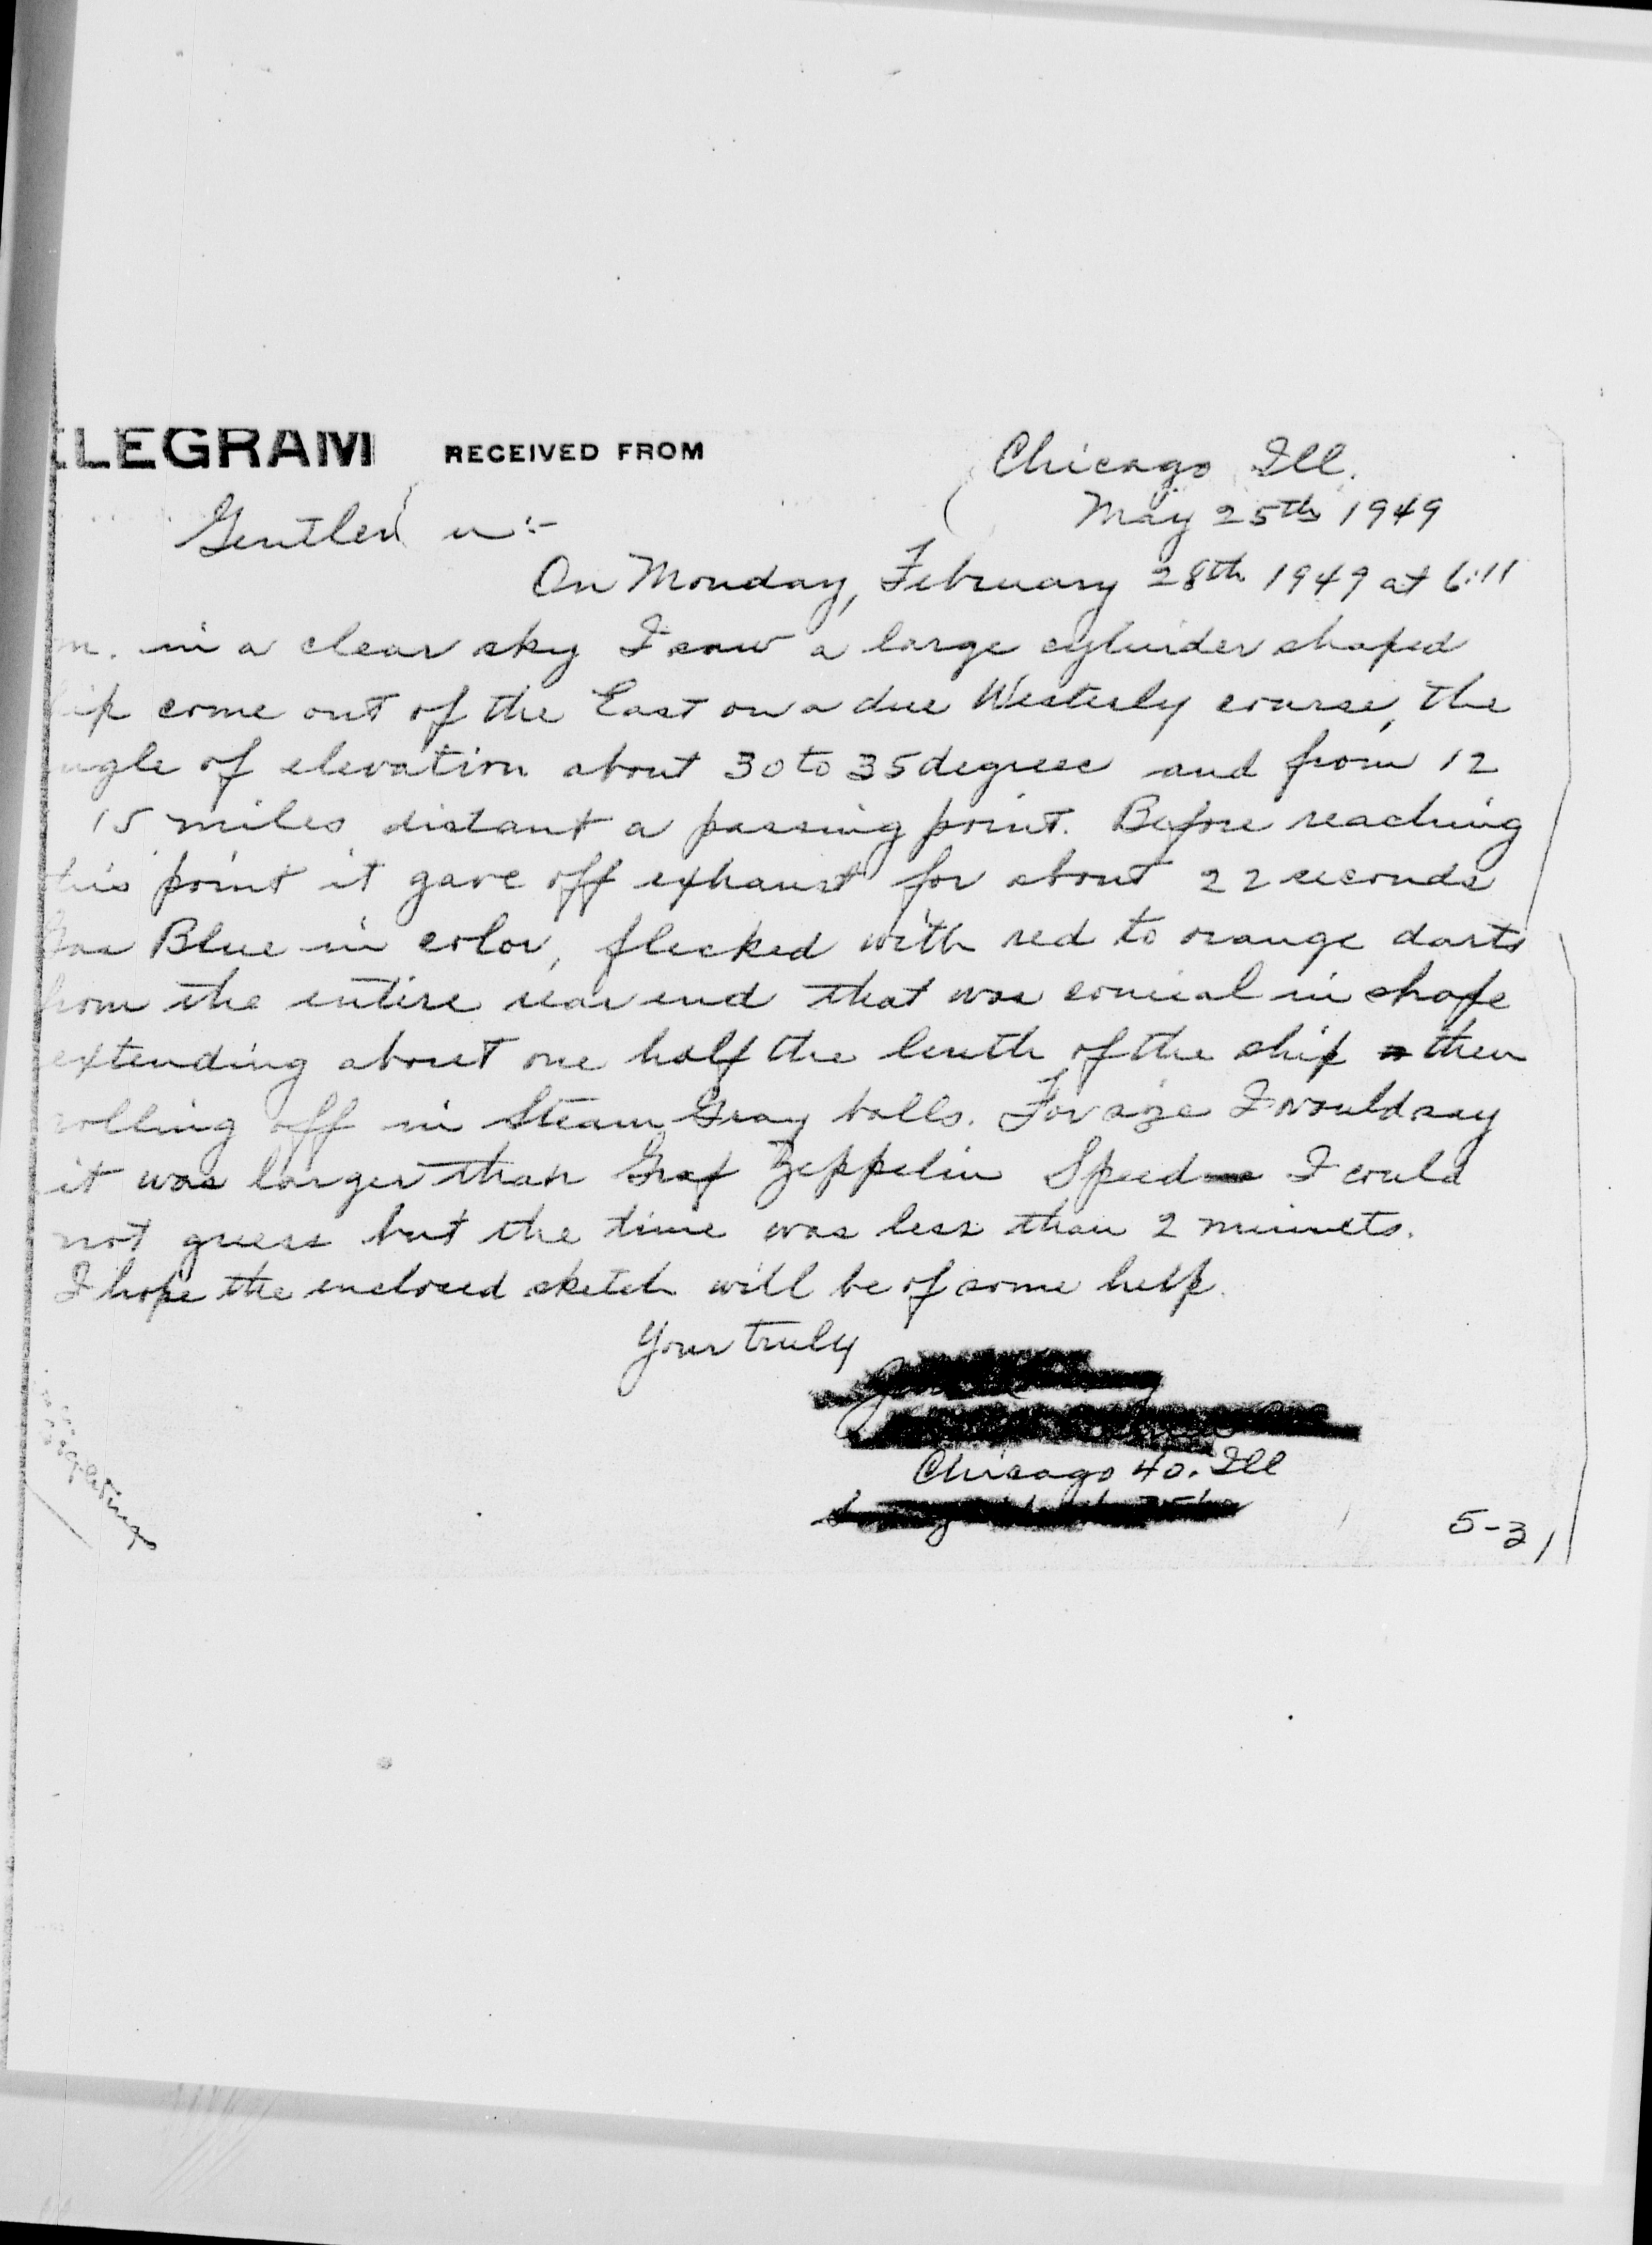 ELEGRAM RECEIVED FROM
Chicago Ill.
May 25th 1949
Gentlem n:-
On Monday, February 28th 1949 at 6:11
m. in a clear sky I saw a large cylinder shaped
ip come out of the East on a due Westerly course, the
ngle of elevation about 30 to 35 degrees and from 12
15 miles distant a passing point. Before reaching
this point it gave off exhaust for about 22 seconds
Gas Blue in color, flecked with red to orange darts
from the entire rear end that was conical in shape
extending about one half the lenth of the ship then
rolling off in Steam Gray balls. For size I would say
it was larger than Graf Zeppelin Speed I could
not guess but the time was less than 2 minuets.
I hope the enclosed sketch will be of some help.
Your truly
Chicago 40. Ill
5-31